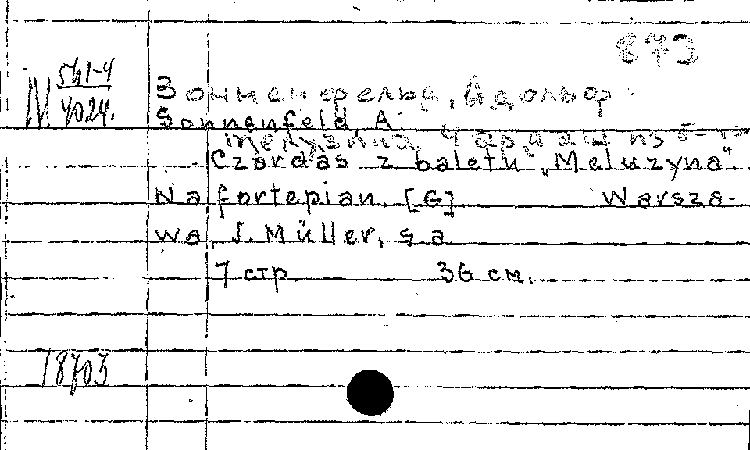 873
М 541-4
4024.
Зонненфельд, Адольф.
Sonnenfeld, A.
Мелузина. Чардаш из б-та
Czardas z baletu "Meluzyna"
Na fortepian. [G] Warsza-
wa, J. Müller, s.a.
7 стр. 36 см.
18703